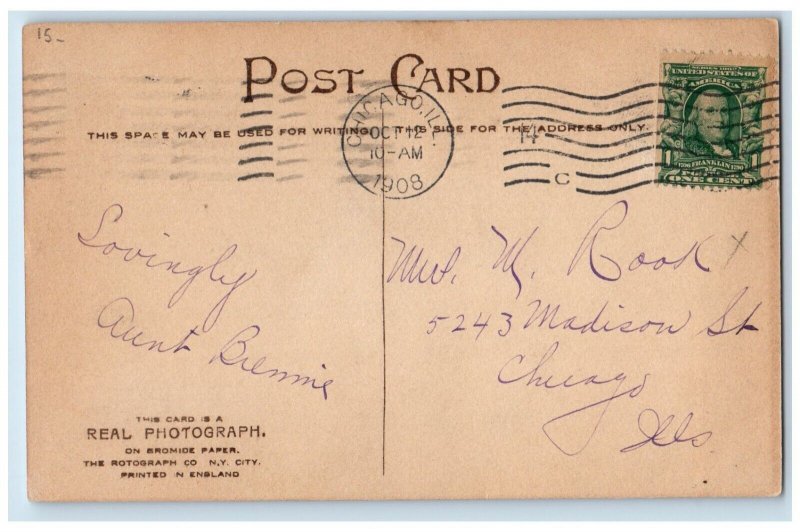 15-
POST CARD
THIS SPACE MAY BE USED FOR WRITING
THIS SIDE FOR THE ADDRESS ONLY.
CHICAGO, ILL.
OCT 12
10-AM
1908
14
C
SERIES 1902
UNITED STATES OF
AMERICA
FRANKLIN
1 1
POSTAGE
ONE CENT
Lovingly
Aunt
Mrs. M. Rook x
5243 Madison St
Chicago
Ills
THIS CARD IS A
REAL PHOTOGRAPH.
ON BROMIDE PAPER.
THE ROTOGRAPH CO N.Y. CITY.
PRINTED IN ENGLAND